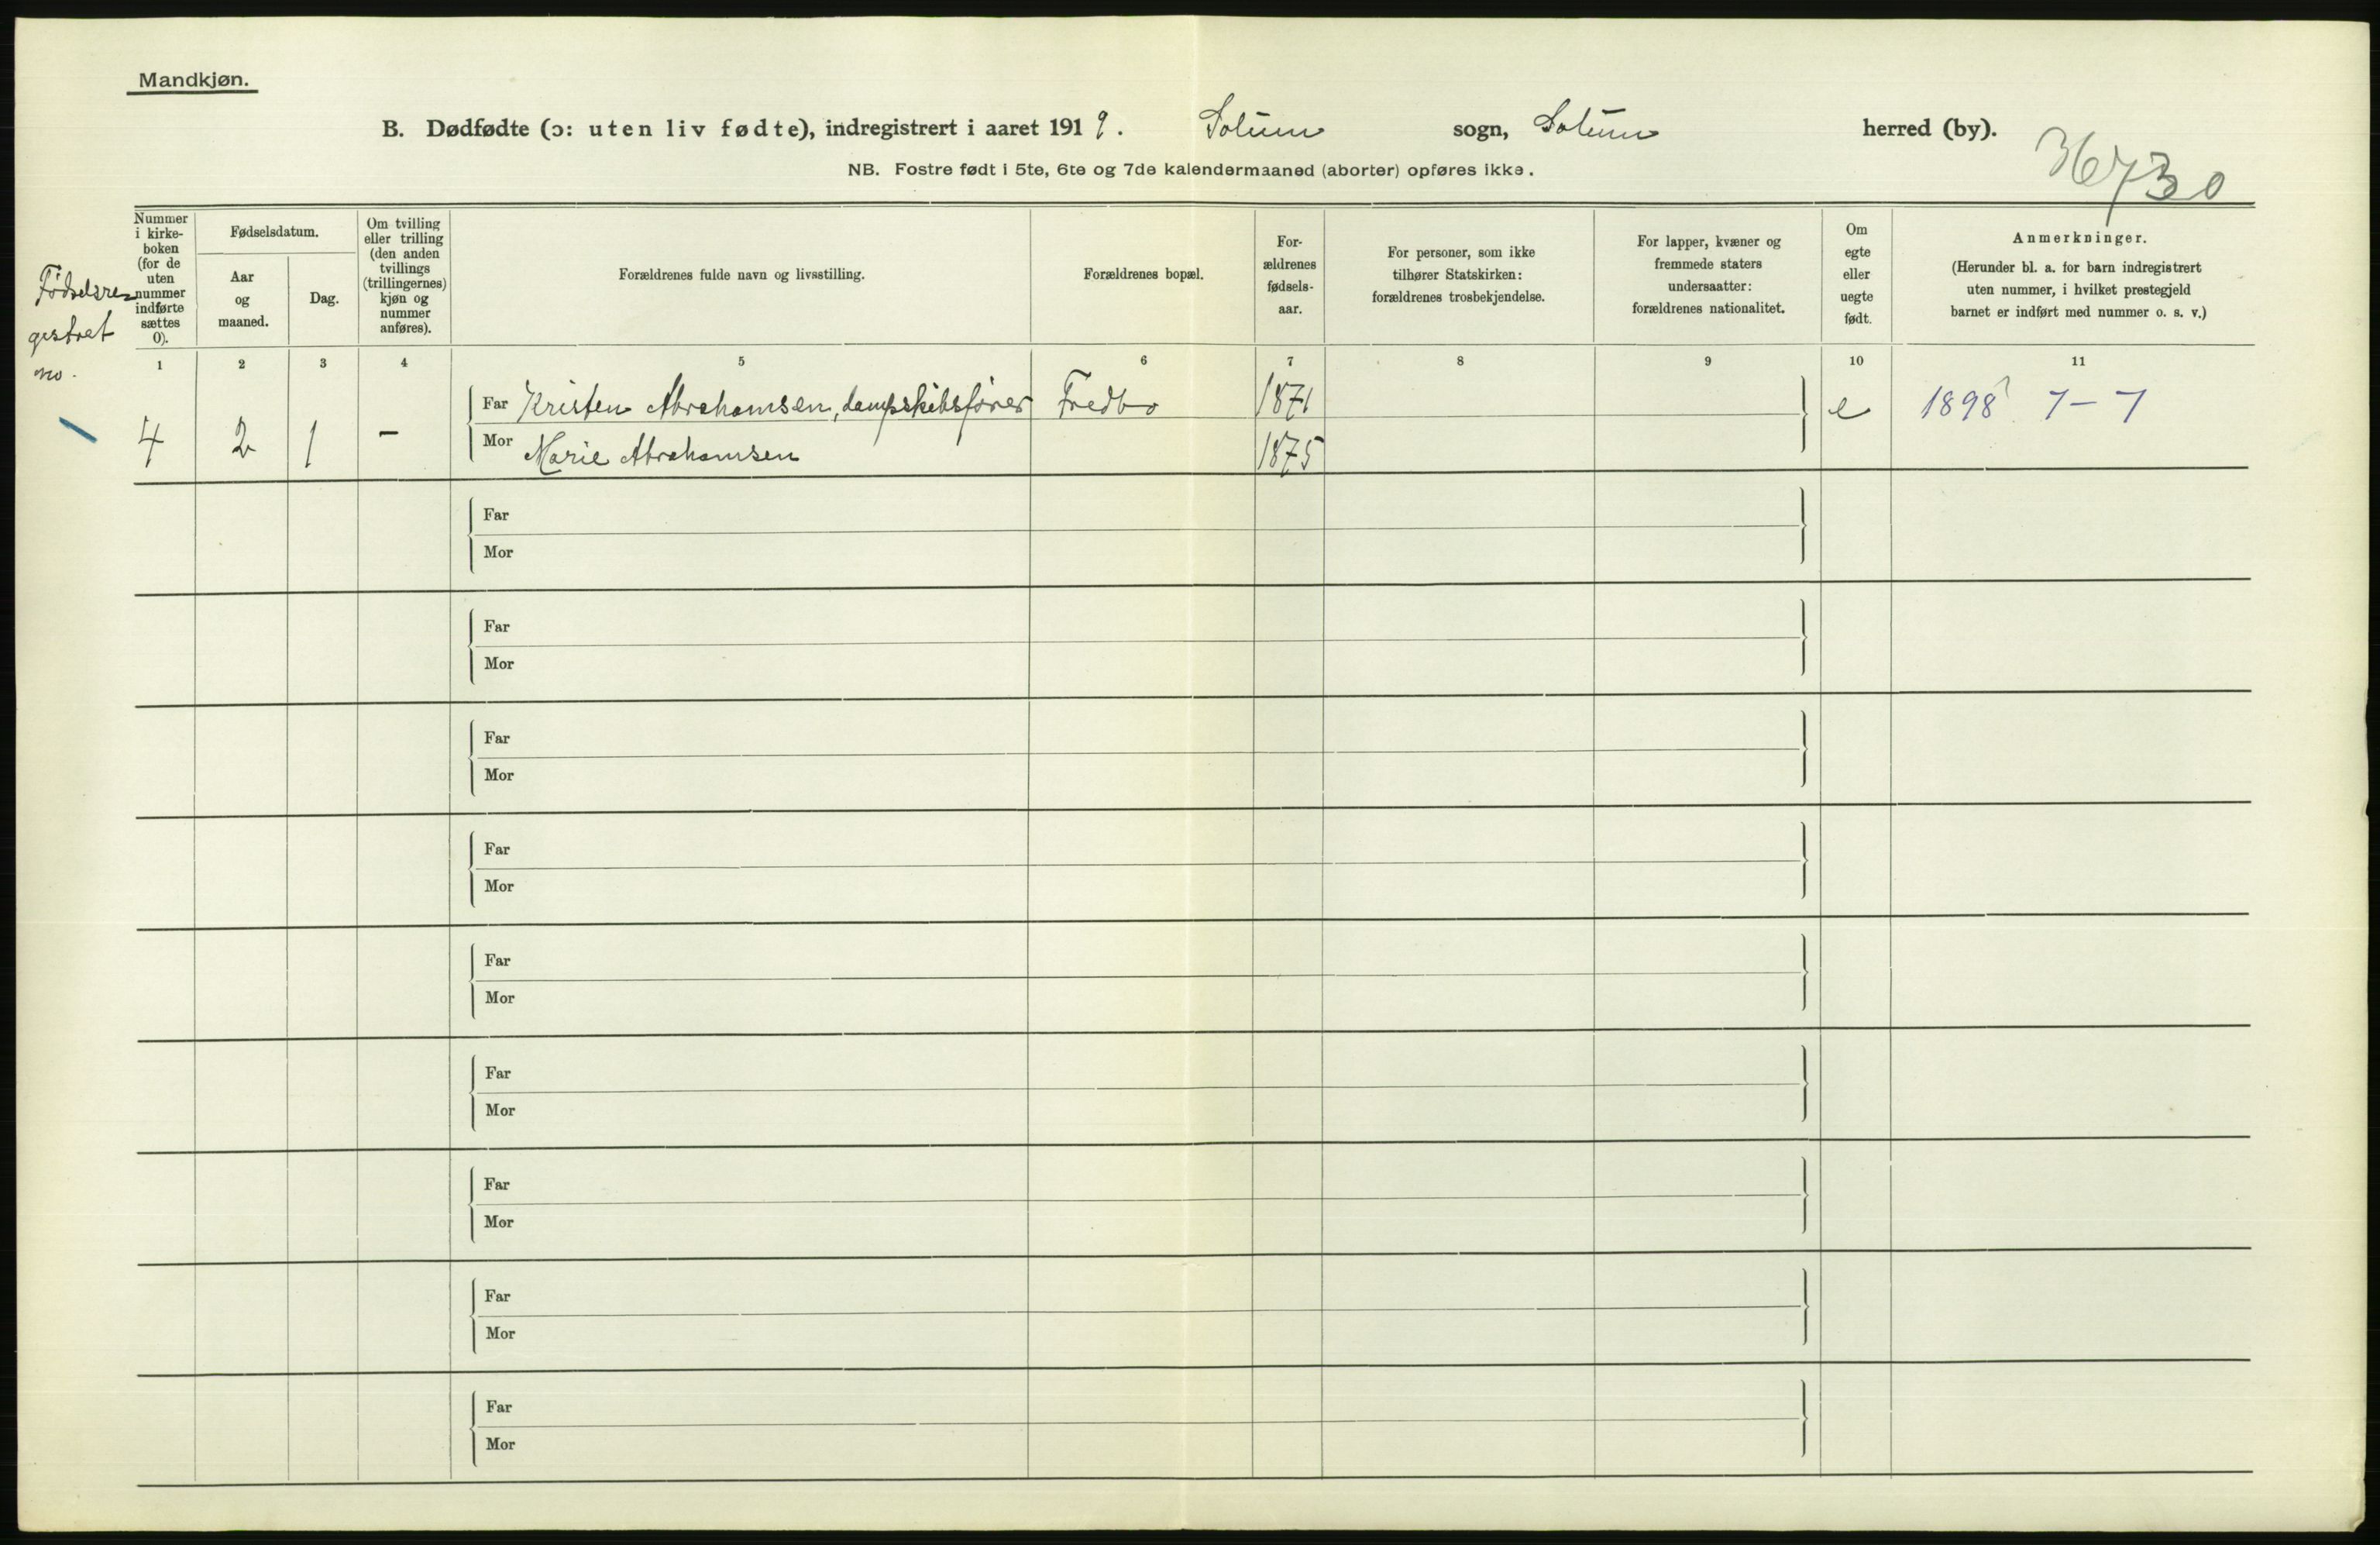 Mandkjøn.
B. Dødfødte (ɔ: uten liv fødte), indregistrert i aaret 1919. Solum sogn, Solum herred (by).
36730
NB. Fostre født i 5te, 6te og 7de kalendermaaned (aborter) opføres ikke.
Fødselsre-
gistret
no.
Nummer
i kirke-
boken
(for de
uten
nummer
indførte
sættes
0).
Fødselsdatum.
Aar
og
maaned.
Dag.
Om tvilling
eller trilling
(den anden
tvillings
(trillingernes)
kjøn og
nummer
anføres).
Forældrenes fulde navn og livsstilling.
Forældrenes bopæl.
For-
ældrenes
fødsels-
aar.
For personer, som ikke
tilhører Statskirken:
forældrenes trosbekjendelse.
For lapper, kvæner og
fremmede staters
undersaatter:
forældrenes nationalitet.
Om
egte
eller
uegte
født.
Anmerkninger.
(Herunder bl. a. for barn indregistrert
uten nummer, i hvilket prestegjeld
barnet er indført med nummer o. s. v.)
1 2 3 4 5 6 7 8 9 10 11
Far Kristen Abrahamsen, dampskibsfører Fredbo 1871 e 1898 7 - 7
4 2 1 -
Mor Marie Abrahamsen 1875
Far
Mor
Far
Mor
Far
Mor
Far
Mor
Far
Mor
Far
Mor
Far
Mor
Far
Mor
Far
Mor